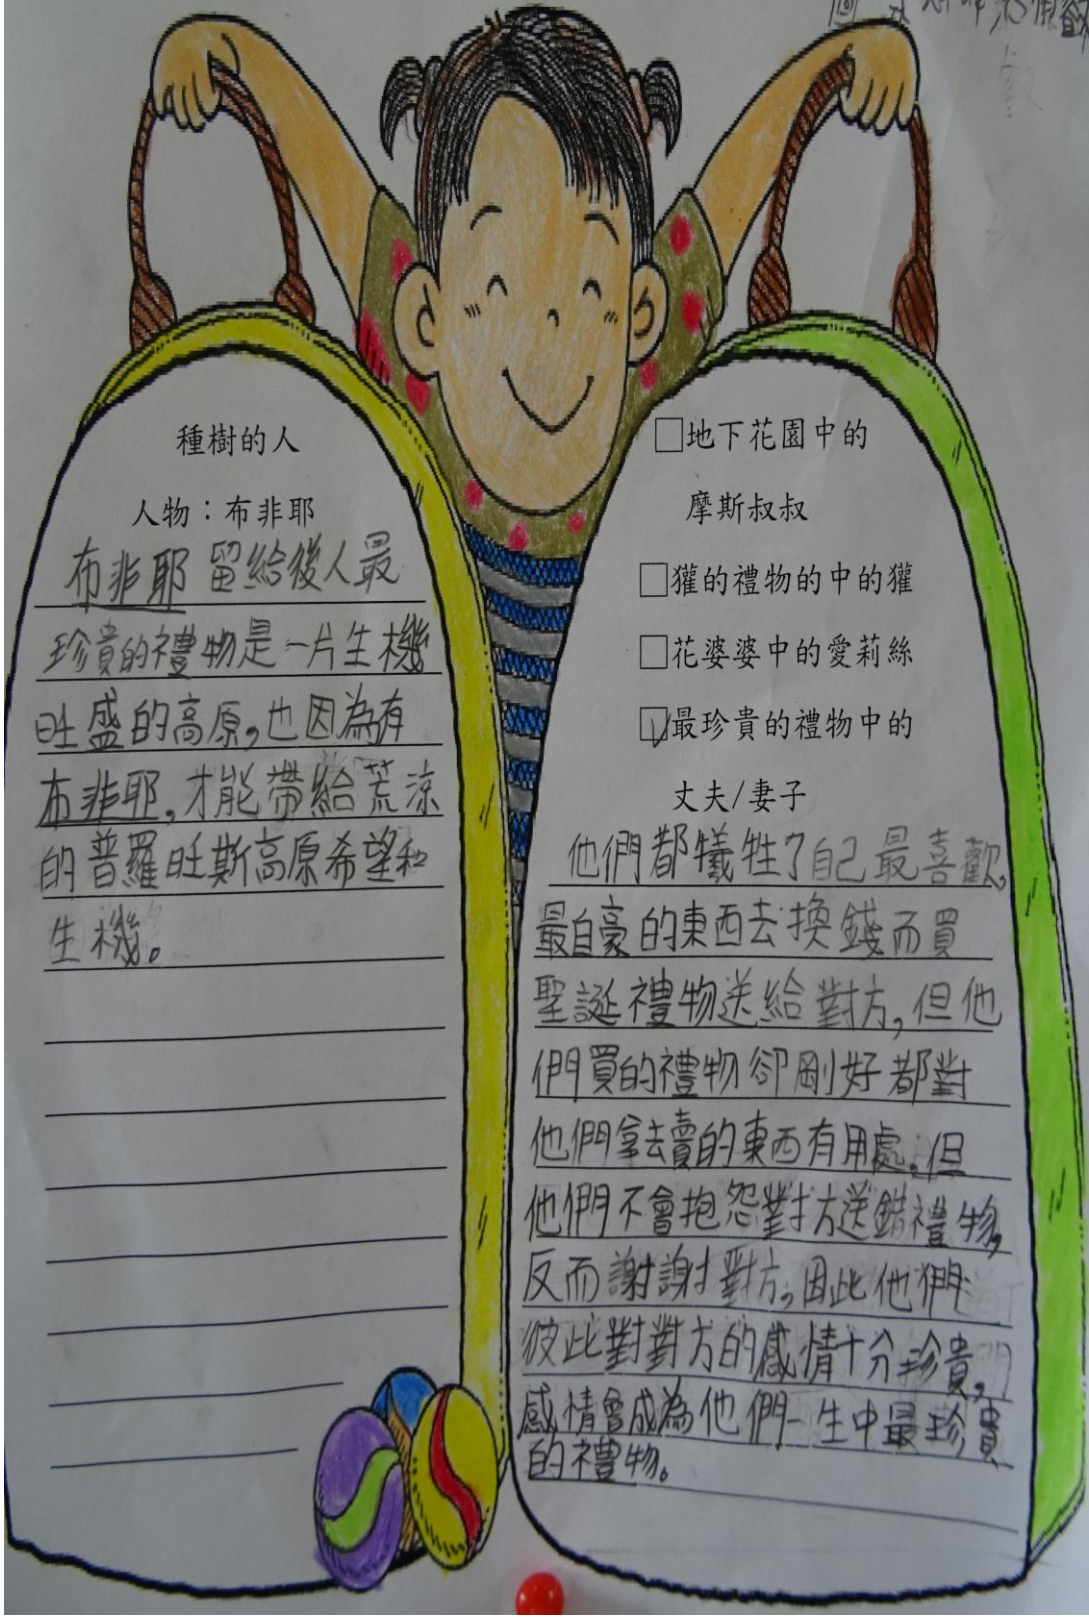 種樹的人
人物：布非耶
布非耶 留給後人最
珍貴的禮物是一片生機
旺盛的高原,也因為有
布非耶,才能帶給荒涼
的普羅旺斯高原希望和
生機。
□地下花園中的
摩斯叔叔
□獾的禮物的中的獾
□花婆婆中的愛莉絲
☑最珍貴的禮物中的
丈夫/妻子
他們都犧牲了自己最喜歡,
最自豪的東西去換錢而買
聖誕禮物送給對方,但他
們買的禮物卻剛好都對
他們拿去賣的東西有用處,但
他們不會抱怨對方送錯禮物,
反而謝謝對方,因此他們
彼此對對方的感情十分珍貴,
感情會成為他們一生中最珍貴
的禮物。